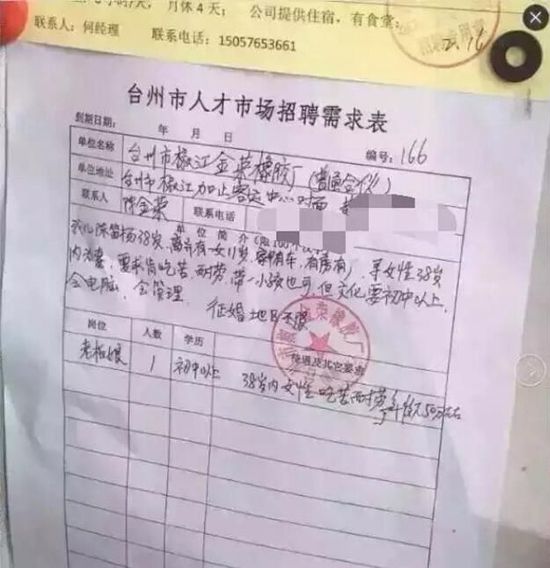 月休4天； 公司提供住宿，有食堂；
联系人：何经理 联系电话：15057653661
2.16
台州市人才市场招聘需求表
到期日期： 年 月 日 编号：166
单位名称 台州市椒江金荣橡胶厂（普通合伙）
单位地址 台州市椒江加止客运中心对面
联系人 陈金荣 联系电话
单位简介（限100个汉字）
陈笛杨38岁，离异有一女11岁，有车，有房有厂，寻女性38岁
内为妻，要求肯吃苦耐劳，带一小孩也可，但文化要初中以上，
会电脑，会管理。 征婚地区不限
岗位 人数 学历 待遇及其它要求
老板娘 1 初中以上 38岁内女性 吃苦耐劳 50万左右